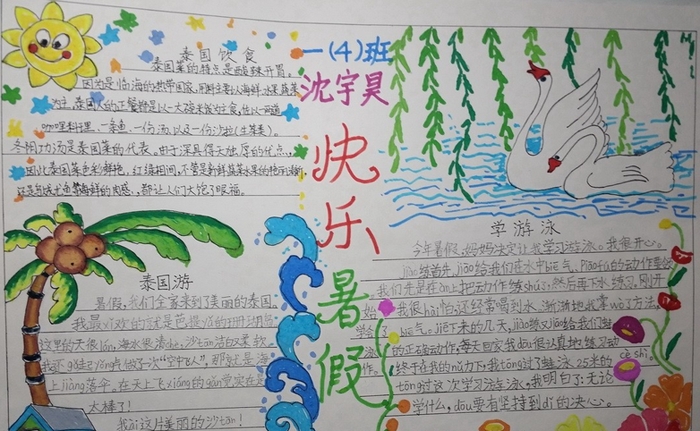 泰国饮食
泰国菜的特点是酸辣开胃。
因为是临海的热带国家,用料主要以海鲜 水果 蔬菜
为主。泰国人的正餐都是以一大碗米饭为主食,佐以一两道
咖哩料理、一条鱼、一份汤,以及一份沙拉(生菜类)。
冬阴功汤是泰国菜的代表。由于深具得天独厚的优点,
因此泰国菜色彩鲜艳,红绿相间,不管是新鲜蔬菜水果的艳丽清新
还是,都让人们大饱了眼福。
一(4)班
沈宇昊
快乐暑假
泰国游
暑假,我们全家来到了美丽的泰国。
我最喜欢的就是芭提yǎ的珊瑚岛
这里的天很lán,海水很清chè,沙tān洁白又柔软。
我还 做了一次“空中飞人”,那就是海
上jiàng落伞,在天上飞xiáng的gǎn觉实在是
太棒了!
我ài这片美丽的沙tān!
学游泳
今年暑假,妈妈决定让我学习游泳。我很开心。
jiào练首先jiāo给我们在水中biē气、
我们先是在àn上把动作练shú,然后再下水练习。刚开
始,我很hài怕还经常喝到水,渐渐地我掌wò方法,
学会了biē气。jiē下来的几天,jiào练又jiāo给我们蛙
泳的正确动作,每天回家我dōu很认真地练习动
作。终于在我的nǔ力下,我tōng过了蛙泳25米的
cè shì。
tōng过这次学习游泳,我明白了:无论
学什么,dōu要有坚持到dǐ的决心。